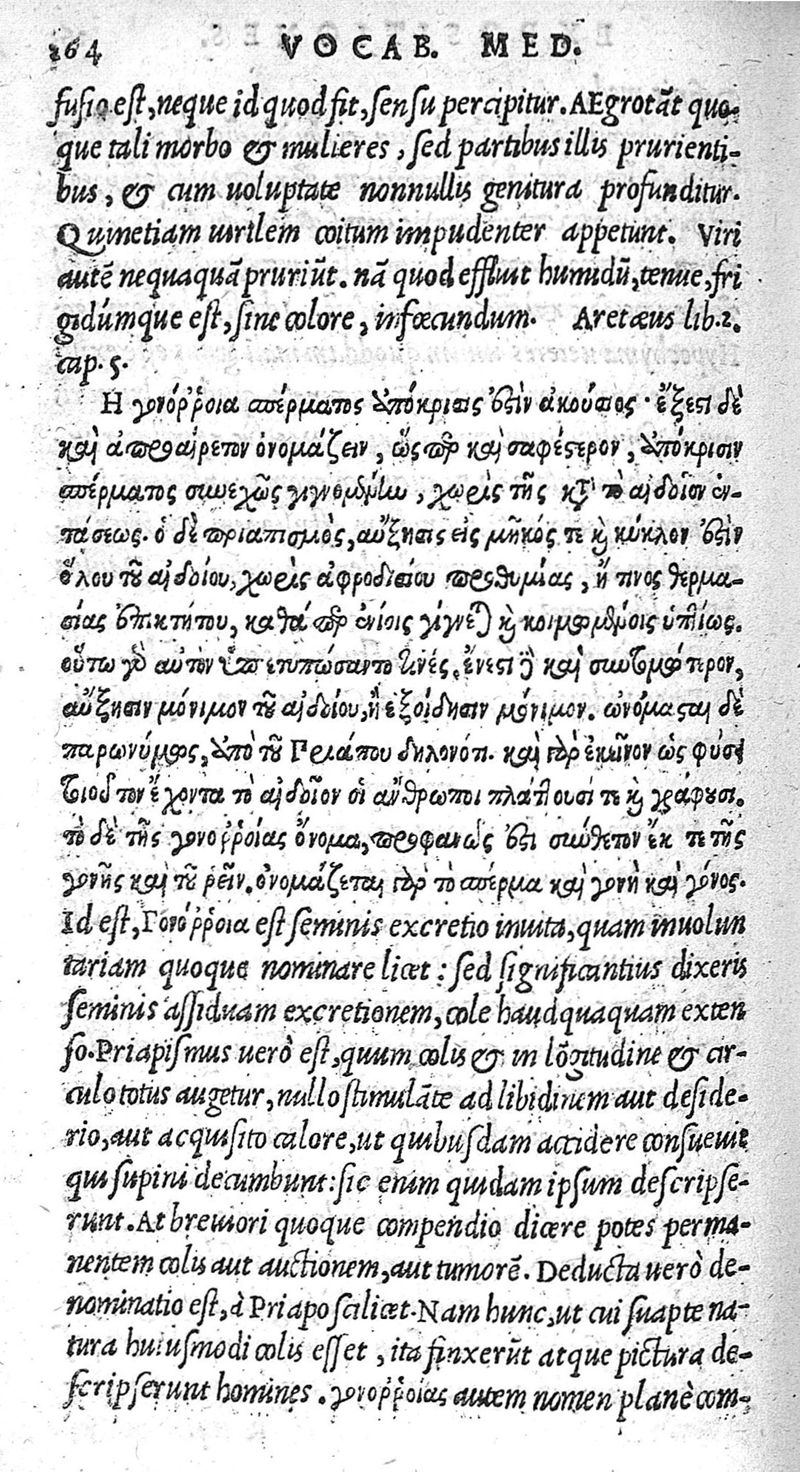 264 VOCAB. MED.
fusio est, neque id quod fit, sensu percipitur. AEgrotāt quo-
que tali morbo & mulieres, sed partibus illis prurienti-
bus, & cum uoluptate nonnullis genitura profunditur.
Quinetiam uirilem coitum impudenter appetunt. Viri
autē nequaquā pruriūt. nā quod effluit humidū, tenue, fri
gidúmque est, sine colore, infœcundum. Aretæus lib. 2.
cap. 5.
Η γονόῤῥοια σπέρματος ἀπόκρισις ὅξιν ἀκούσιος· ἔξεστι δὲ
καὶ ἀπροαίρετον ὀνομάζειν, ὥσπερ καὶ σαφέστερον, ἀπόκρισιν
σπέρματος συνεχῶς γιγνομένην, χωρὶς τῆς κατὰ τὸ αἰδοῖον ἐν-
τάσεως. ὁ δὲ πριαπισμὸς, αὔξησις εἰς μῆκός τε κ κύκλον ἐστὶν
ὅλου τοῦ αἰδοίου, χωρὶς ἀφροδισίου προθυμίας, ἤ τινος θερμα-
σίας ἐπικτήτου, καθάπερ ἐνίοις γίγνεται κ κοιμωμένοις ὑπτίως.
οὕτω γὸ αὐτὸν ὑπετυπώσαντο τινές. ἔνεστι δὲ καὶ συντομώτερον,
αὔξησιν μόνιμον τοῦ αἰδοίου, ἢ ἐξοίδησιν μόνιμον. ὠνόμασται δὲ
παρωνύμως, ἀπὸ τοῦ Πριάπου δηλονότι. καὶ γὰρ ἐκεῖνον ὡς φύσει
τοιοῦτον ἔχοντα τὸ αἰδοῖον οἱ ἄνθρωποι πλάττουσί τε κ γράφουσι.
τὸ δὲ τῆς γονοῤῥοίας ὄνομα, προφανῶς ἐστι σύνθετον ἔκ τε τῆς
γονῆς καὶ τοῦ ῥεῖν. ὀνομάζεται γὰρ τὸ σπέρμα καὶ γονὴ καὶ γόνος.
Id est, Γονόῤῥοια est seminis excretio inuita, quam inuolun
tariam quoque nominare licet: sed significantius dixeris
seminis assiduam excretionem, cole haudquaquam exten
so. Priapismus uerò est, quum colis & in lōgitudine & cir-
culo totus augetur, nullo stimulāte ad libidinem aut deside-
rio, aut acquisito calore, ut quibusdam accidere consueuit
qui supini decumbunt: sic enim quidam ipsum descripse-
runt. At breuiori quoque compendio dicere potes perma-
nentem colis aut auctionem, aut tumorē. Deducta uerò de-
nominatio est, à Priapo scilicet. Nam hunc, ut cui suapte na-
tura huiusmodi colis esset, ita finxerūt atque pictura de-
scripserunt homines. γονοῤῥοίας autem nomen planè com-